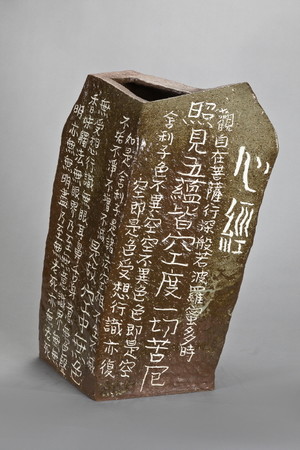 心經
觀自在菩薩行深般若波羅蜜多時
照見五蘊皆空度一切苦厄
舍利子色不異空空不異色色即是空
空即是色受想行識亦復
如是舍利子是諸法空相不生不滅
不垢不淨不增不減
是故空中無色
無受想行識無眼耳鼻舌身意無色
香味觸法無眼界乃至無意識界無無
明亦無無明盡乃至無老死亦無